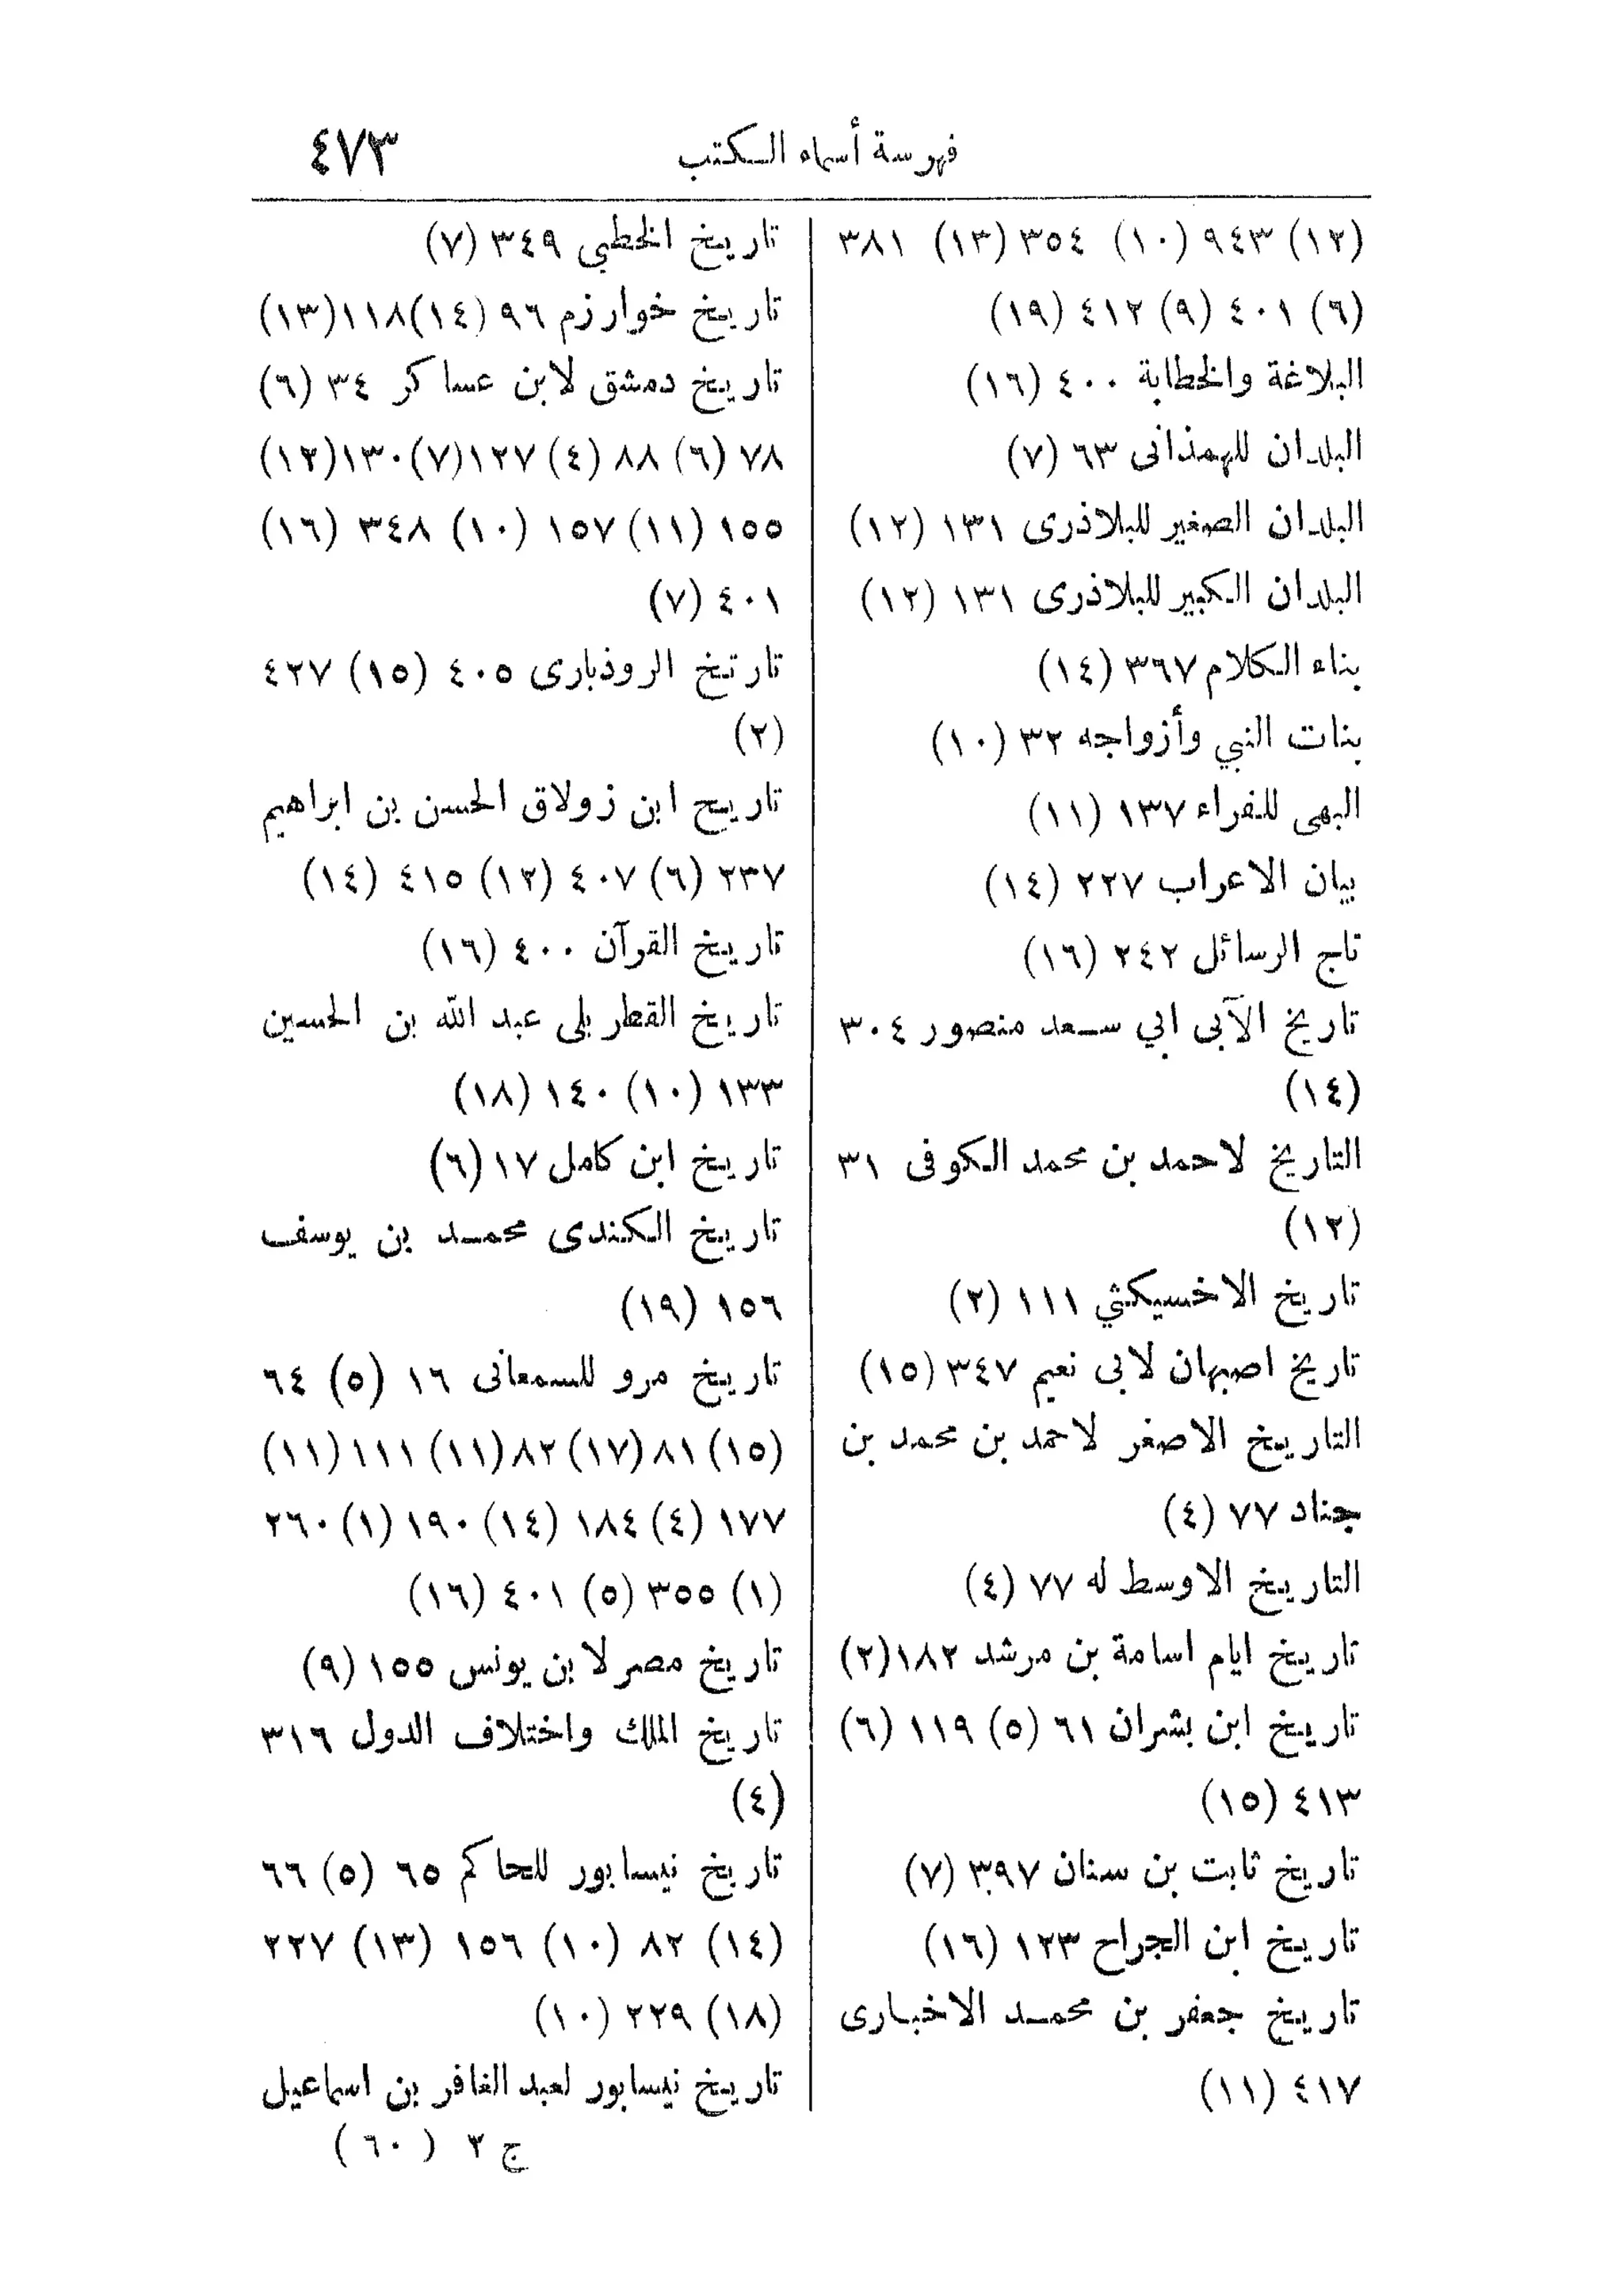 فهرسة أسماء الكتب ٤٧٣
(١٢) ٩٤٣ (١٠) ٣٥٤ (١٣) ٣٨١
(٦) ٤٠١ (٩) ٤١٢ (١٩)
البلاغة والخطابة ٤٠٠ (١٦)
البلدان للهمذانى ٦٣ (٧)
البلدان الصغير للبلاذرى ١٣١ (١٢)
البلدان الكبير للبلاذرى ١٣١ (١٢)
بناء الكلام ٣٦٧ (١٤)
بنات النبي وأزواجه ٣٢ (١٠)
البهى للفراء ١٣٧ (١١)
بيان الاعراب ٢٢٧ (١٤)
تاج الرسائل ٢٤٢ (١٦)
تاريخ الآبى ابي سعد منصور ٣٠٤
(١٤)
التاريخ لاحمد بن محمد الكوفى ٣١
(١٢)
تاريخ الاخسيكثي ١١١ (٢)
تاريخ اصبهان لابى نعيم ٣٤٧ (١٥)
التاريخ الاصغر لاحمد بن محمد بن
جناد ٧٧ (٤)
التاريخ الاوسط له ٧٧ (٤)
تاريخ ايام اسامة بن مرشد ١٨٢ (٢)
تاريخ ابن بشران ٦١ (٥) ١١٩ (٦)
٤١٣ (١٥)
تاريخ ثابت بن سنان ٣٩٧ (٧)
تاريخ ابن الجراح ١٢٣ (١٦)
تاريخ جعفر بن محمد الاخبارى
٤١٧ (١١)
تاريخ الخطبي ٣٤٩ (٧)
تاريخ خوارزم ٩٦ (١٤) ١١٨ (١٣)
تاريخ دمشق لابن عساكر ٣٤ (٦)
٧٨ (٦) ٨٨ (٤) ١٢٧ (٧) ١٣٠ (١٢)
١٥٥ (١١) ١٥٧ (١٠) ٣٤٨ (١٦)
٤٠١ (٧)
تارتخ الروذبارى ٤٠٥ (١٥) ٤٢٧
(٢)
تاريح ابن زولاق الحسن بن ابراهيم
٢٣٧ (٦) ٤٠٧ (١٢) ٤١٥ (١٤)
تاريخ القرآن ٤٠٠ (١٦)
تاريخ القطربلى عبد الله بن الحسين
١٣٣ (١٠) ١٤٠ (١٨)
تاريخ ابن كامل ١٧ (٦)
تاريخ الكندى محمد بن يوسف
١٥٦ (١٩)
تاريخ مرو للسمعانى ١٦ (٥) ٦٤
(١٥) ٨١ (١٧) ٨٢ (١١) ١١١ (١١)
١٧٧ (٤) ١٨٤ (١٤) ١٩٠ (١) ٢٦٠
(١) ٣٥٥ (٥) ٤٠١ (١٦)
تاريخ مصر لابن يونس ١٥٥ (٩)
تاريخ الملك واختلاف الدول ٣١٦
(٤)
تاريخ نيسابور للحاكم ٦٥ (٥) ٦٦
(١٤) ٨٢ (١٠) ١٥٦ (١٣) ٢٢٧
(١٨) ٢٢٩ (١٠)
تاريخ نيسابور لعبد الغافر بن اسماعيل
ج ٢ (٦٠)